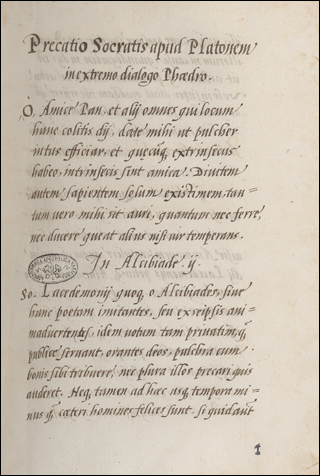 Precatio Socratis apud Platonem
in extremo dialogo Phædro.
O Amice Pan, et alij omnes qui locum
hunc colitis dij, date mihi ut pulcher
intus efficiar, et quęcūq, extrinsecus
habeo, intrinsecis sint amica. Divitem
autem sapientem solum existimem, tan-
tum vero mihi sit auri, quantum nec ferre,
nec ducere queat alius nisi vir temperans.
In Alcibiade ij.
So. Lacedemonij quoq, o Alcibiades, sive
hunc poetam imitantes, seu ex seipsis ani-
maduertentes, idem votum tam privatim, q̃
publice servant, orantes deos, pulchra cum
bonis sibi tribuere, nec plura illos precari quis
auderet. Neq, tamen ad hæc usq, tempora mi-
nus q̃ cæteri homines felices sunt. si quid aūt
1